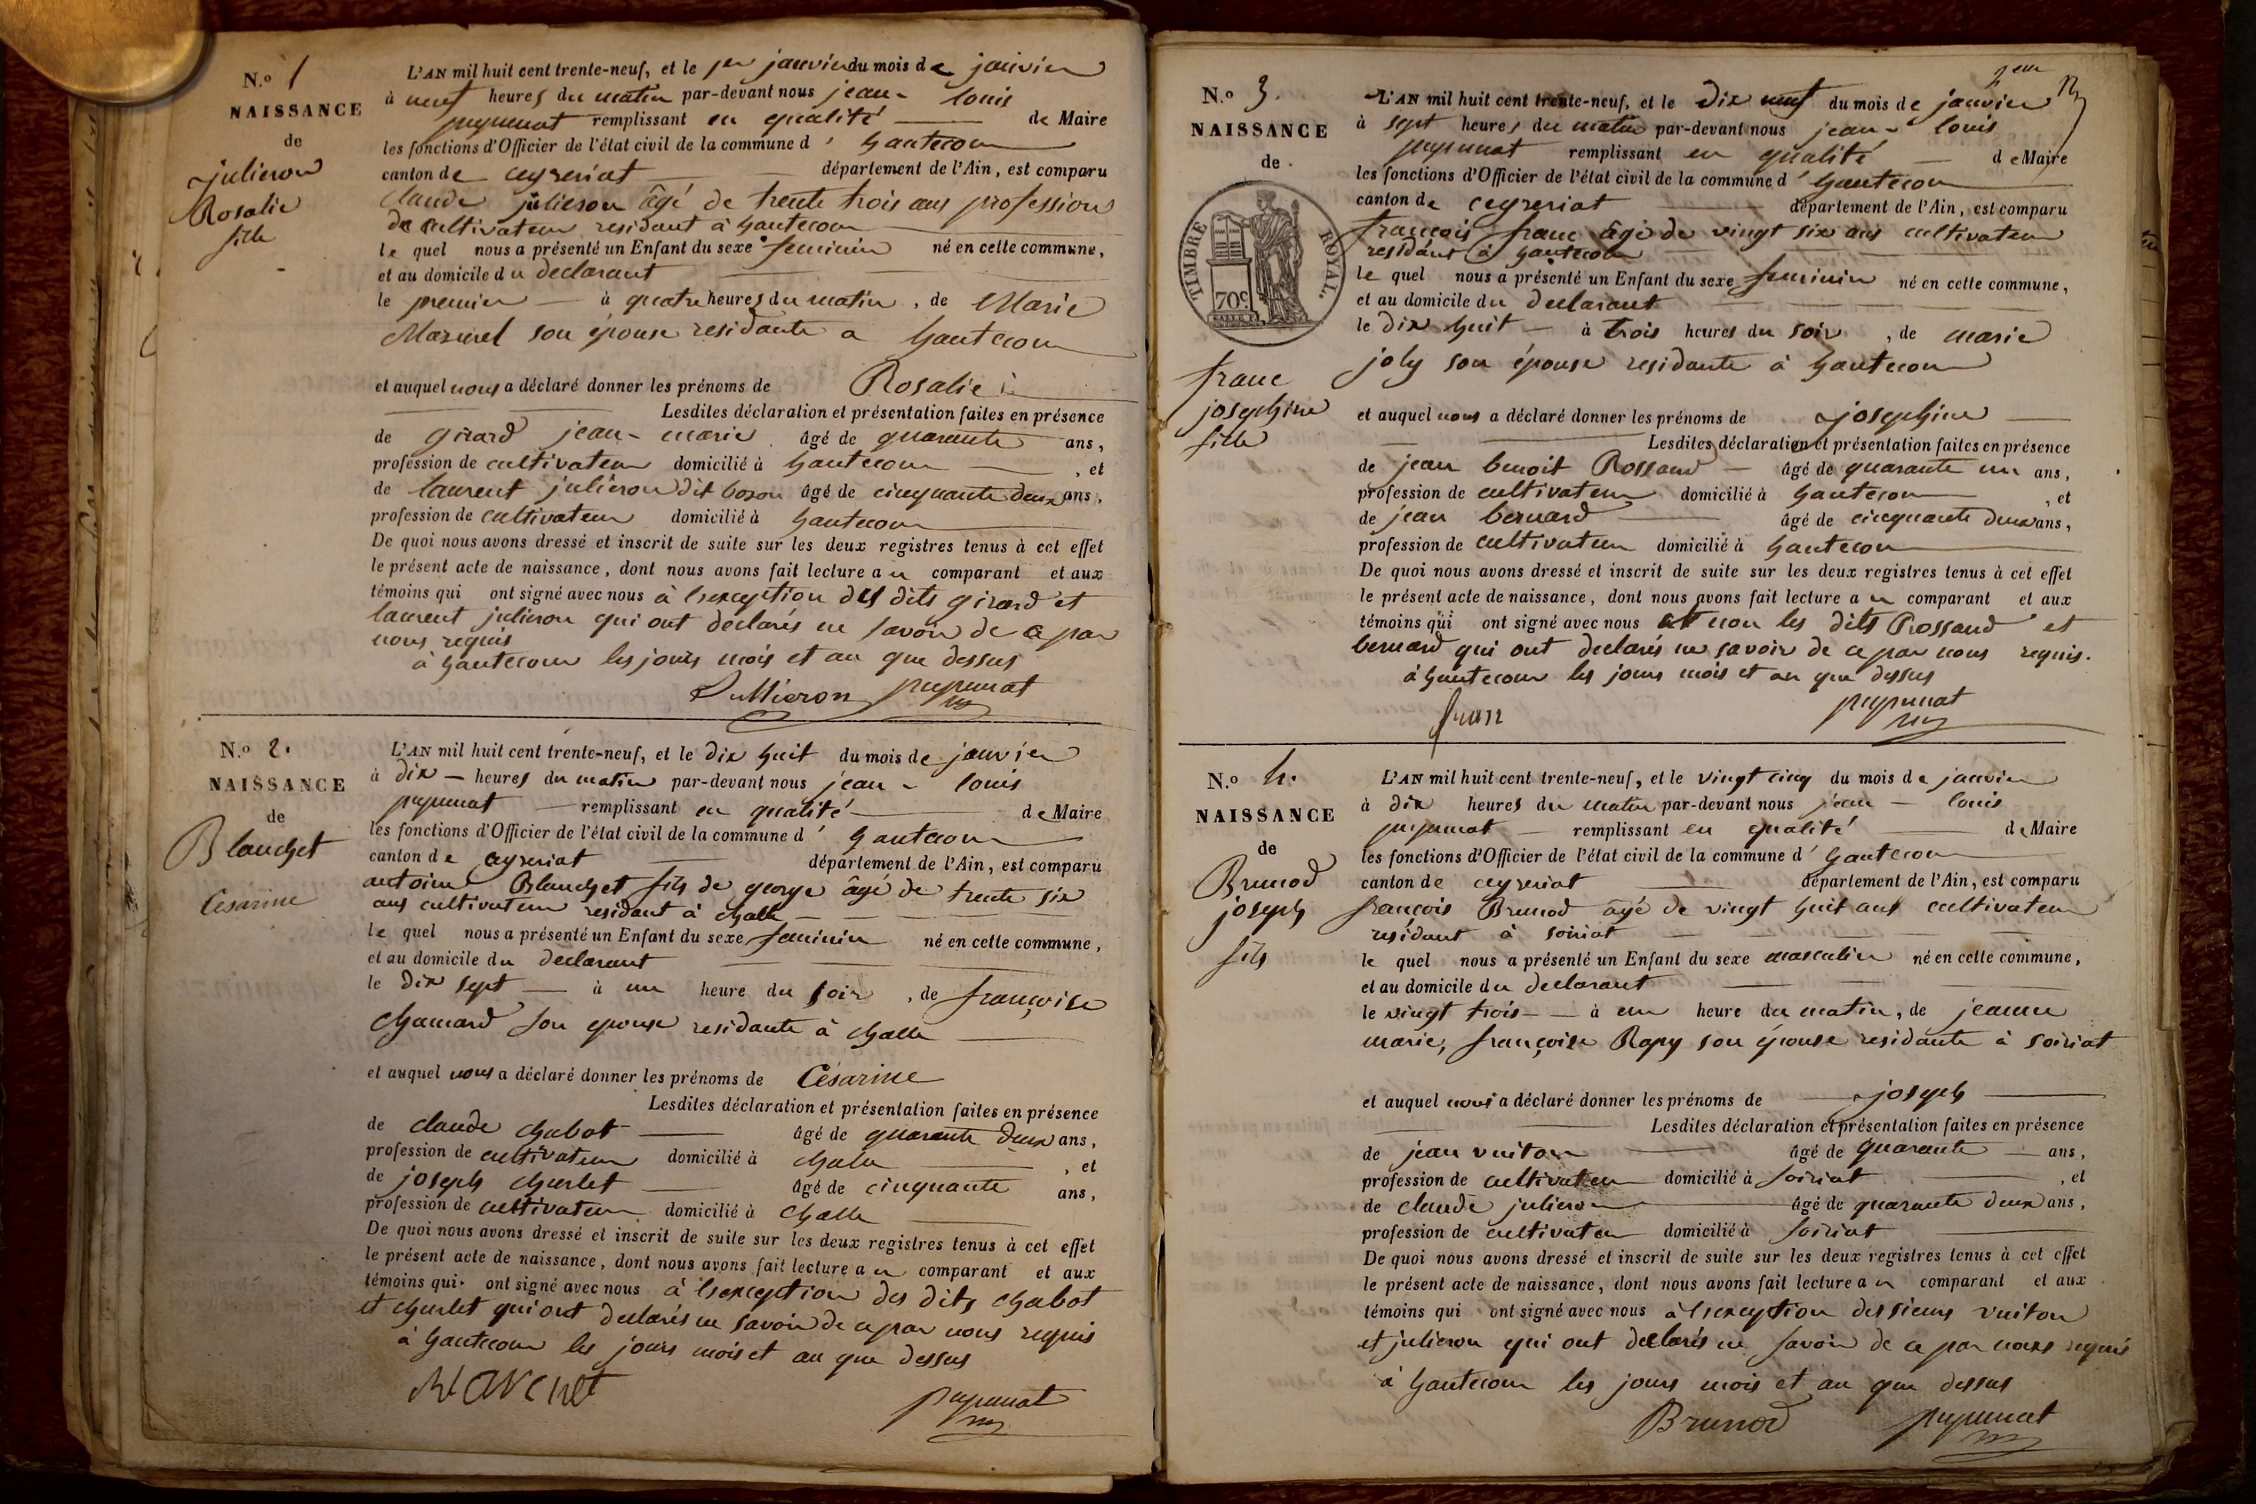 N.º 1
NAISSANCE
de
julieron
Rosalie
fille
L'AN mil huit cent trente-neuf, et le 1er janvier du mois de janvier
à neuf heures du matin par-devant nous jean-louis
puyunat remplissant en qualité de Maire
les fonctions d'Officier de l'état civil de la commune d' hautecour
canton de ceyzeriat département de l'Ain, est comparu
claude julieron âgé de trente trois ans profession
de cultivateur residant à hautecour
le quel nous a présenté un Enfant du sexe feminin né en cette commune,
et au domicile du declarant
le premier à quatre heures du matin, de Marie
Mazuel son épouse residante a hautecour
et auquel nous a déclaré donner les prénoms de Rosalie
Lesdites déclaration et présentation faites en présence
de girard jean-marie âgé de quarante ans,
profession de cultivateur domicilié à hautecour, et
de laurent julieron dit bozon âgé de cinquante deux ans,
profession de cultivateur domicilié à hautecour
De quoi nous avons dressé et inscrit de suite sur les deux registres tenus à cet effet
le présent acte de naissance, dont nous avons fait lecture au comparant et aux
témoins qui ont signé avec nous à l'exception des dits girard et
laurent julieron qui ont declarés ne savoir de ce par
nous requis
à hautecour les jours mois et an que dessus
Jullieron puyunat
N.º 2.
NAISSANCE
de
Blanchet
Césarine
L'AN mil huit cent trente-neuf, et le dix huit du mois de janvier
à dix heures du matin par-devant nous jean-louis
puyunat remplissant en qualité de Maire
les fonctions d'Officier de l'état civil de la commune d' hautecour
canton de ceyzeriat département de l'Ain, est comparu
antoine Blanchet fils de george âgé de trente six
ans cultivateur residant à challe
le quel nous a présenté un Enfant du sexe feminin né en cette commune,
et au domicile du declarant
le dix sept à une heure du soir, de françoise
chamard son epouse residante à challe
et auquel nous a déclaré donner les prénoms de Césarine
Lesdites déclaration et présentation faites en présence
de claude chabot âgé de quarante deux ans,
profession de cultivateur domicilié à challe, et
de joseph churlet âgé de cinquante ans,
profession de cultivateur domicilié à challe
De quoi nous avons dressé et inscrit de suite sur les deux registres tenus à cet effet
le présent acte de naissance, dont nous avons fait lecture au comparant et aux
témoins qui ont signé avec nous à l'exception des dits chabot
et churlet qui ont declarés ne savoir de ce par nous requis
à hautecour les jours mois et an que dessus
Blanchet
puyunat
N.º 3.
NAISSANCE
de
TIMBRE ROYAL.
70c
franc
josephine
fille
L'AN mil huit cent trente-neuf, et le dix neuf du mois de janvier
à sept heures du matin par-devant nous jean-louis
puyunat remplissant en qualité de Maire
les fonctions d'Officier de l'état civil de la commune d' hautecour
canton de ceyzeriat département de l'Ain, est comparu
françois franc âgé de vingt six ans cultivateur
residant à hautecour
le quel nous a présenté un Enfant du sexe feminin né en cette commune,
et au domicile du declarant
le dix huit à trois heures du soir, de marie
joly son épouse residante à hautecour
et auquel nous a déclaré donner les prénoms de josephine
Lesdites déclaration et présentation faites en présence
de jean benoit Rossand âgé de quarante un ans,
profession de cultivateur domicilié à hautecour, et
de jean bernard âgé de cinquante deux ans,
profession de cultivateur domicilié à hautecour
De quoi nous avons dressé et inscrit de suite sur les deux registres tenus à cet effet
le présent acte de naissance, dont nous avons fait lecture au comparant et aux
témoins qui ont signé avec nous et non les dits Rossand et
bernard qui ont declarés ne savoir de ce par nous requis.
à hautecour les jours mois et an que dessus
franc
puyunat
N.º 4.
NAISSANCE
de
Brunod
joseph
fils
L'AN mil huit cent trente-neuf, et le vingt cinq du mois de janvier
à dix heures du matin par-devant nous jean-louis
puyunat remplissant en qualité de Maire
les fonctions d'Officier de l'état civil de la commune d' hautecour
canton de ceyzeriat département de l'Ain, est comparu
françois Brunod âgé de vingt huit ans cultivateur
residant à soiriat
le quel nous a présenté un Enfant du sexe masculin né en cette commune,
et au domicile du declarant
le vingt trois à une heure du matin, de jeanne
marie, françoise Rapy son épouse residante à soiriat
et auquel nous a déclaré donner les prénoms de joseph
Lesdites déclaration et présentation faites en présence
de jean vuiton âgé de quarante ans,
profession de cultivateur domicilié à soiriat, et
de claude julieron âgé de quarante deux ans,
profession de cultivateur domicilié à soiriat
De quoi nous avons dressé et inscrit de suite sur les deux registres tenus à cet effet
le présent acte de naissance, dont nous avons fait lecture au comparant et aux
témoins qui ont signé avec nous à l'exception des sieurs vuiton
et julieron qui ont declarés ne savoir de ce par nous requis
à hautecour les jours mois et an que dessus
Brunod puyunat